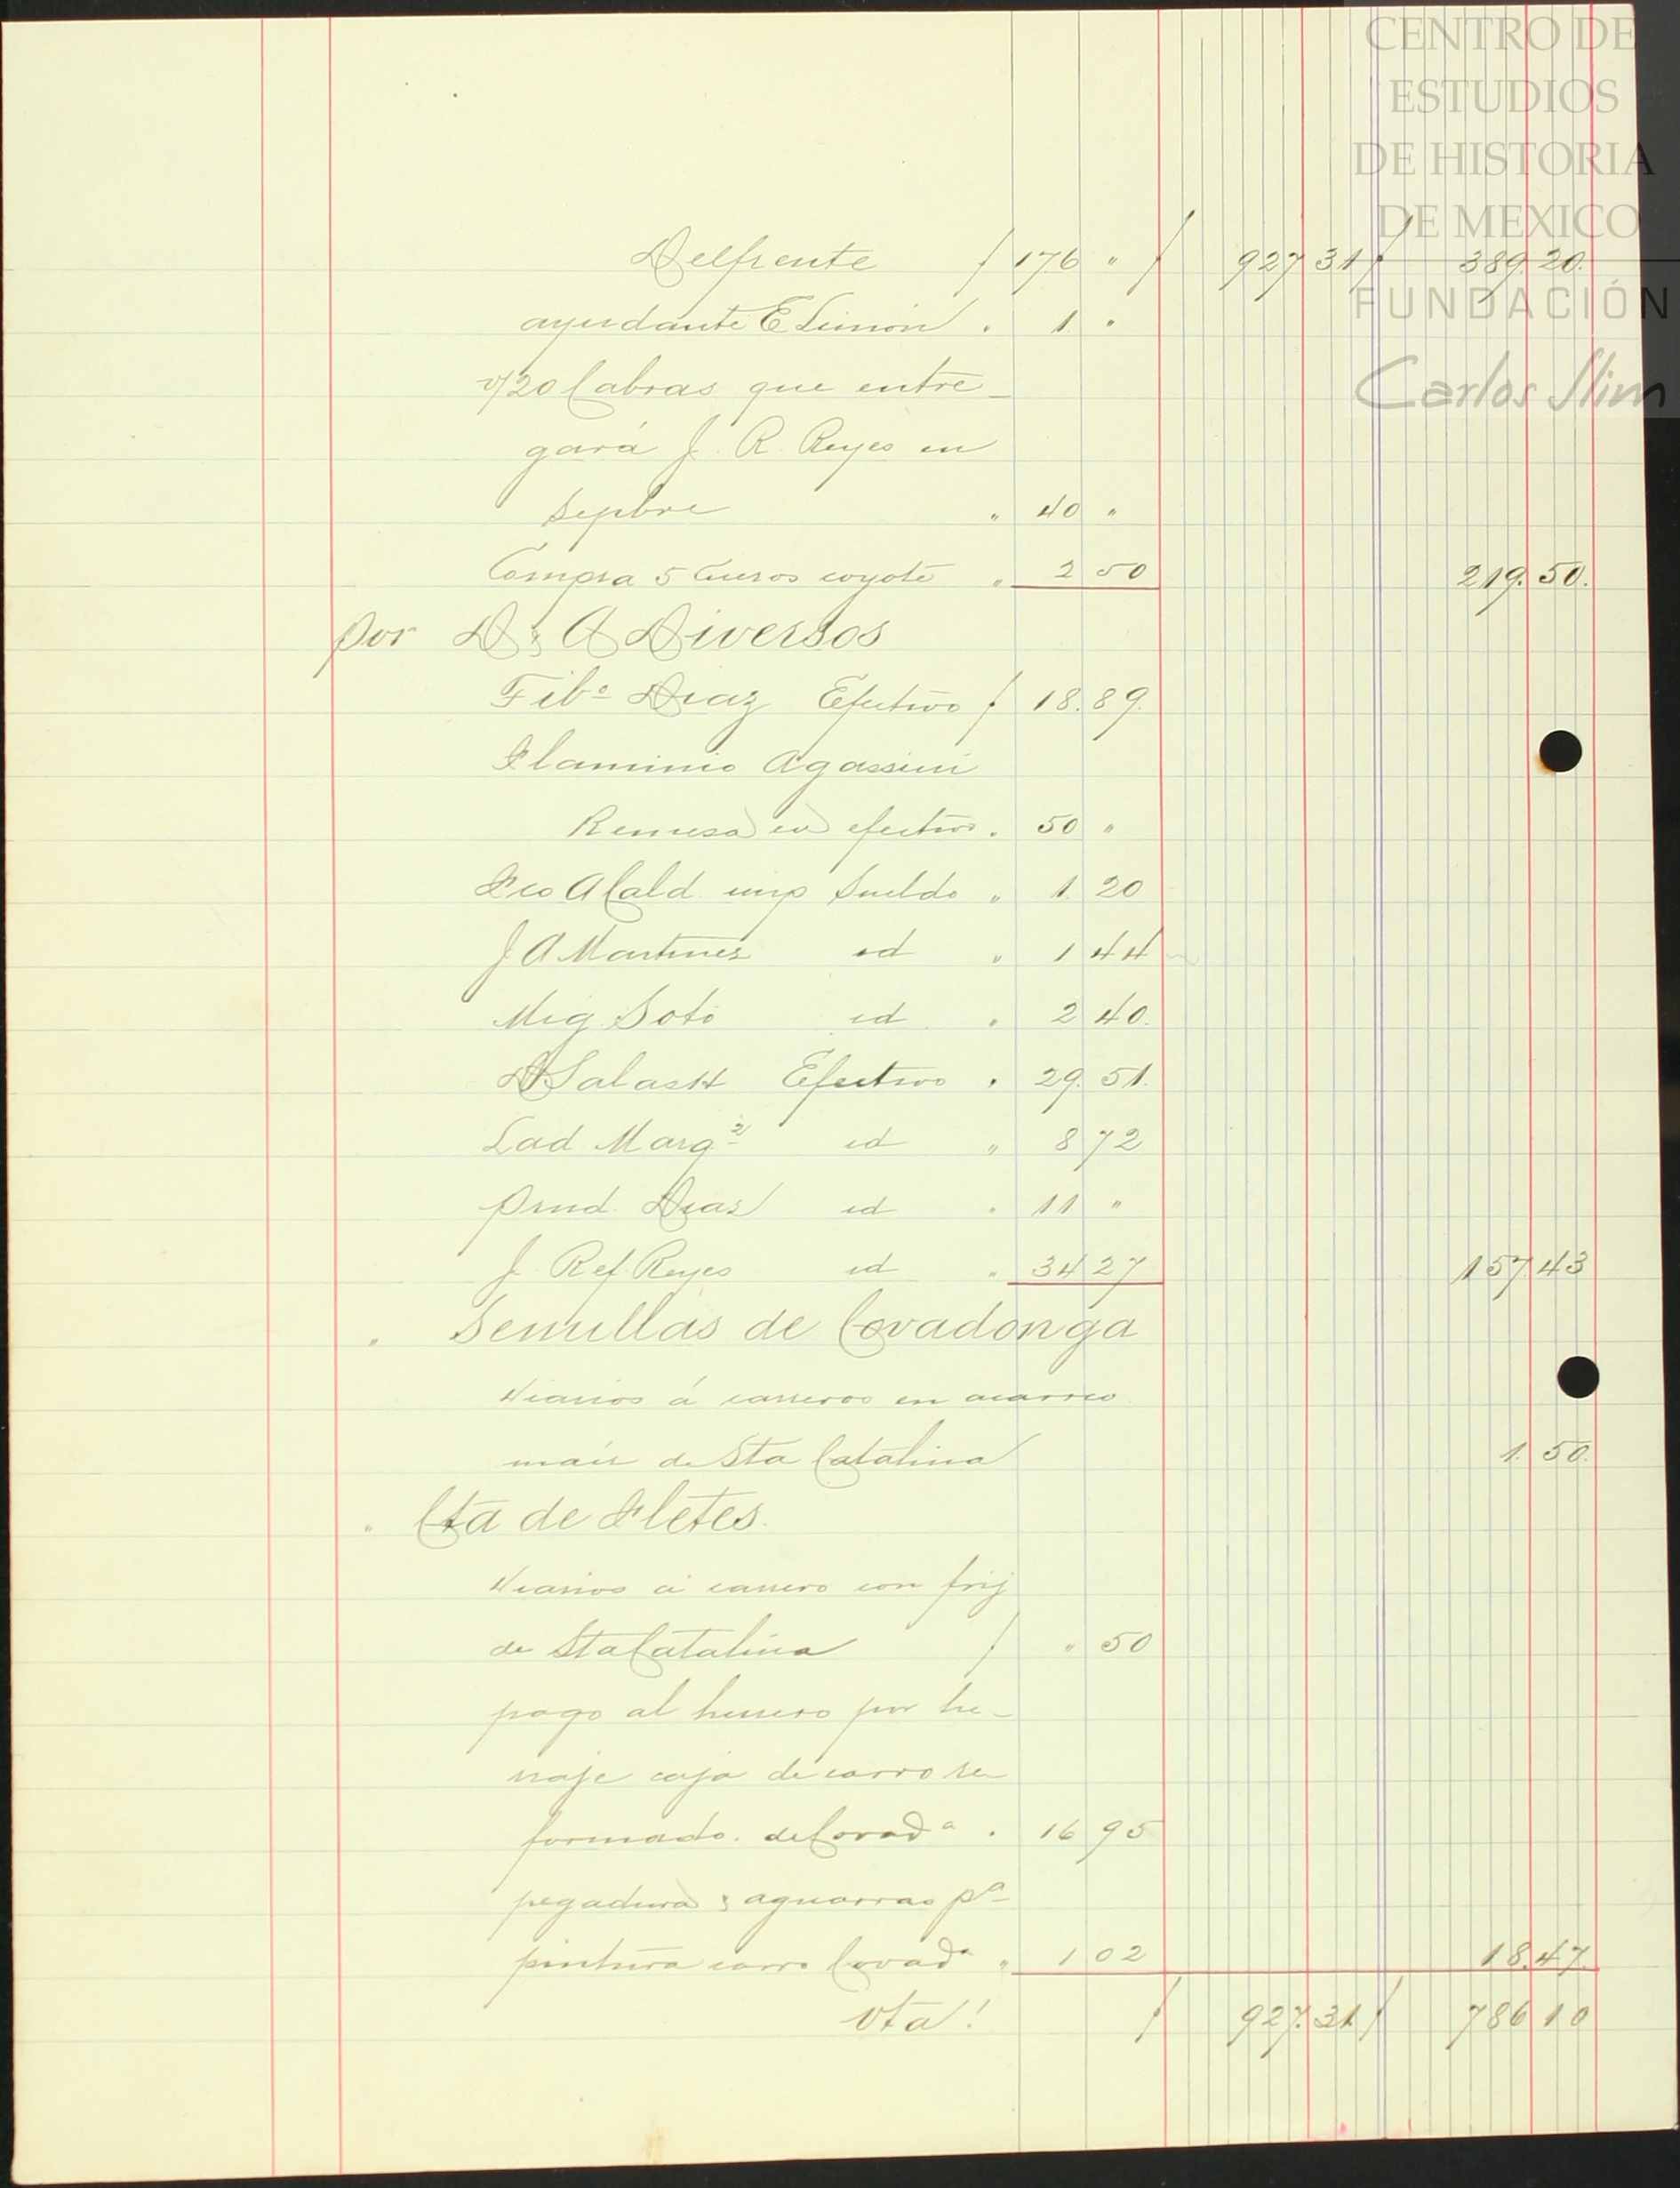 CENTRO DE
ESTUDIOS
DE HISTORIA
DE MEXICO
FUNDACIÓN
Carlos Slim
Delfrente $ 176 " $ 927 31 $ 389.20.
ayudante E Simón " 1 "
v/20 Cabras que entre-
gará J. R. Reyes en
Sepbre " 40 "
Compra 5 Cueros coyote " 2 50 219.50.
por D. & A Diversos
Tibo Diaz Efectivo $ 18.89.
Flaminio Agassini
Remesa en efectivo " 50 "
Fco A Cald. imp Sueldo " 1. 20
J A Martinez id " 1 44
Mig. Soto id. " 2 40.
D Salas H Efectivo " 29. 51.
Lad Marqz id " 8 72
Prud. Diaz id " 11 "
J. Ref. Reyes id " 34 27 157 43
" Semillas de Covadonga
diarios á carreros en acarreo
maiz de Sta Catalina 1. 50.
" Cta de Fletes.
diarios á carrero con frij
de Sta Catalina $ " 50
pago al herrero por he-
rraje caja de carro re
formado. de Covada " 16 95
pegadura & aguarras pa
pintura carro Covada " 1 02 18.47.
Vta! $ 927.31. $ 786 10